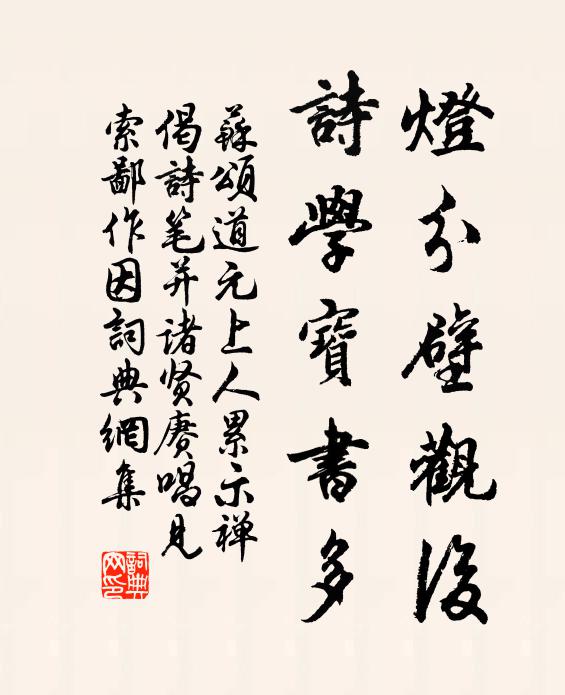 燈分壁觀後
詩學寶書多
蘇頌道元上人累示禅
偈詩笔并诸贤赓唱见
索鄙作因詞典網集
詞典网印